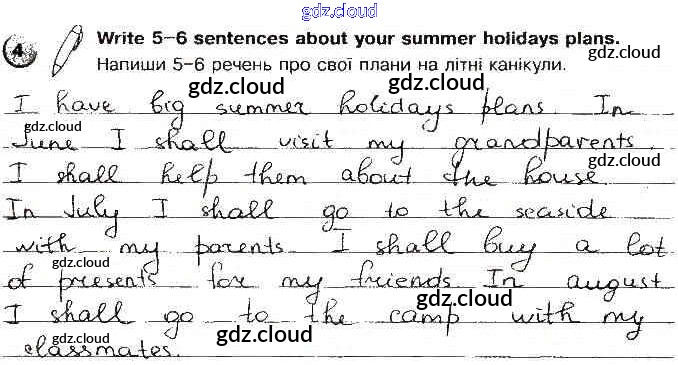 gdz.cloud
4 Write 5–6 sentences about your summer holidays plans.
Напиши 5–6 речень про свої плани на літні канікули.
gdz.cloud
gdz.cloud
I have big summer holidays plans. In
gdz.cloud
gdz.cloud
June I shall visit my grandparents.
gdz.cloud
I shall help them about the house
gdz.cloud
In July I shall go to the seaside
gdz.cloud
with my parents. I shall buy a lot
gdz.cloud
of presents for my friends. In august
gdz.cloud
I shall go to the camp with my
gdz.cloud
gdz.cloud
classmates.
gdz.cloud